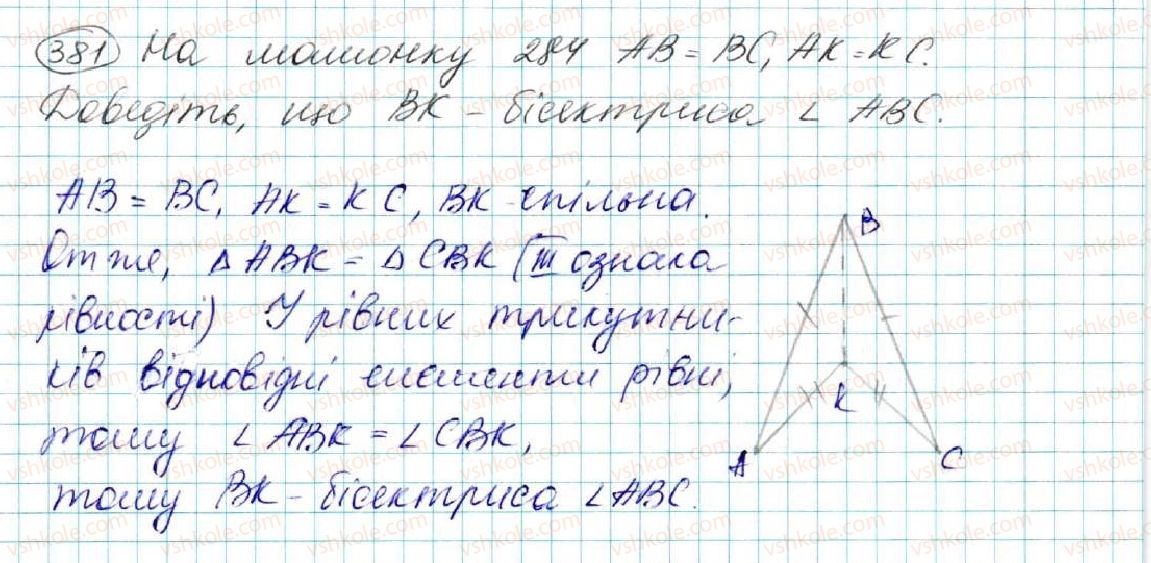 381 На малюнку 284 AB = BC, AK = KC.
Доведіть, що BK - бісектриса ∠ ABC.
AB = BC, AK = KC, BK спільна.
Отже, △ ABK = △ CBK (III ознака
рівності) У рівних трикутни-
ків відповідні елементи рівні,
тому ∠ ABK = ∠ CBK,
тому BK - бісектриса ∠ABC.
B
K
A
C
vshkole.com